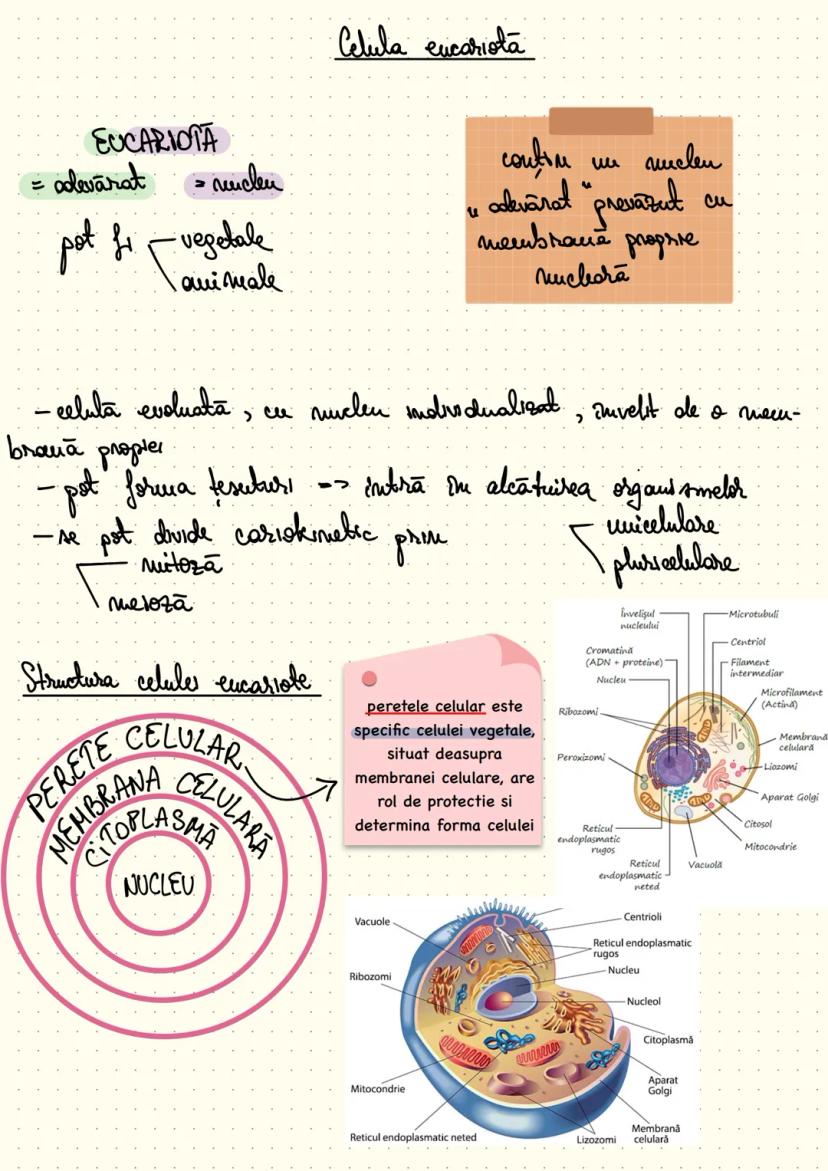 Celula eucariotă
EUCARIOTĂ
= adevărat = nucleu
pot fi vegetale
animale
conțin un nucleu
"adevărat" prevăzut cu
membrană proprie
nucleară
- celulă evoluată, cu nucleu individualizat, învelit de o mem-
brană propriei
- pot forma țesuturi => intră în alcătuirea organismelor
unicelulare
pluricelulare
- se pot divide cariokinetic prin
mitoză
meioză
Structura celulei eucariote
PERETE CELULAR
MEMBRANA CELULARĂ
CITOPLASMĂ
NUCLEU
peretele celular este
specific celulei vegetale,
situat deasupra
membranei celulare, are
rol de protectie si
determina forma celulei
Învelișul
nucleului
Microtubuli
Centriol
Cromatină
(ADN + proteine)
Filament
intermediar
Nucleu
Microfilament
(Actină)
Ribozomi
Membrană
celulară
Peroxizomi
Liozomi
Aparat Golgi
Citosol
Reticul
endoplasmatic
rugos
Mitocondrie
Vacuolă
Reticul
endoplasmatic
neted
Vacuole
Centrioli
Reticul endoplasmatic
rugos
Ribozomi
Nucleu
Nucleol
Citoplasmă
Mitocondrie
Aparat
Golgi
Reticul endoplasmatic neted
Lizozomi
Membrană
celulară